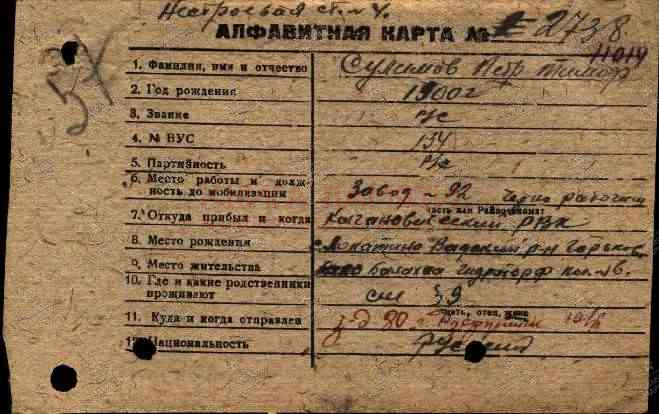 Нестроевая ст. 4
АЛФАВИТНАЯ КАРТА № 2738
11014
54
1. Фамилия, имя и отчество Сулимов Петр Тимоф
2. Год рождения 1900г
3. Звание р/с
4. № ВУС 134
5. Партийность
6. Место работы и долж-
ность до мобилизации Завод - 92 Черно рабочий
часть или Райвоенкомат
7. Откуда прибыл и когда Кагановический РВК
8. Место рождения Вадский р-н Горьков.
9. Место жительства Балахна Гидроторф
10. Где и какие родственники
проживают см 39
мать, отец, жена
11. Куда и когда отправлен
12. Национальность русский